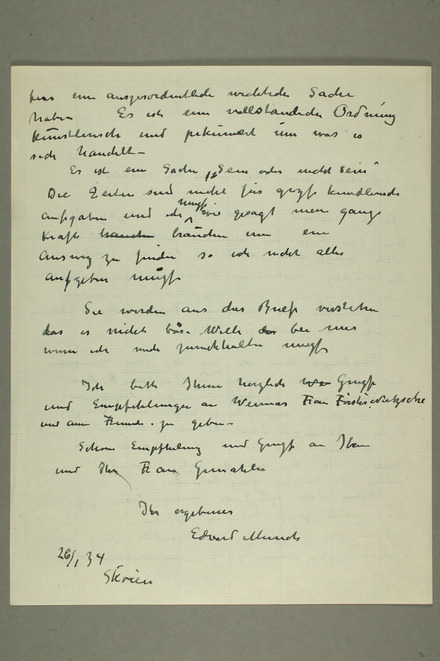 eine ausserordentliche wichtiche Sache
haben Es ist eine vollständiche Ordnung
künstlerisch und pekuniert um was es
sich handelt –
Es ist ein Sache „Sein oder nicht sein"
Die Zeiten sind nicht für grosse kunstleriche
aufgaben und ich muss wie gesagt mein ganze
Kraft brauchen um ein
Ausweg zu finden so ich nicht alles
aufgeben muss
Sie werden aus das Brief verstehen
das es nicht böse Wille bei mir
wenn ich mich zurückhalten muss
Ich bitte Ihnen herzlich Grusse
und Empfehlungen an Weimar Frau Förster-Nietzsche
und am Freunde zu geben –
Schöne Empfehlung und Gruss an Ihnen
und Ihr Frau Gemahlin
Ihr ergebener
Edvard Munch
26/1 34
Skøien